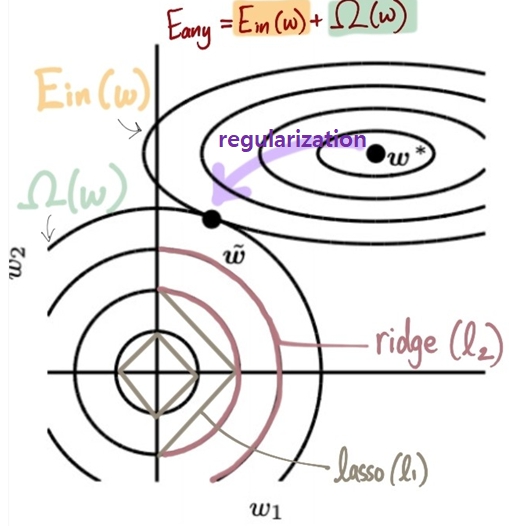 Eany = Ein(w) + Ω(w)
Ein(w)
regularization
w*
Ω(w)
w̃
w₂
ridge (l₂)
lasso (l₁)
w₁